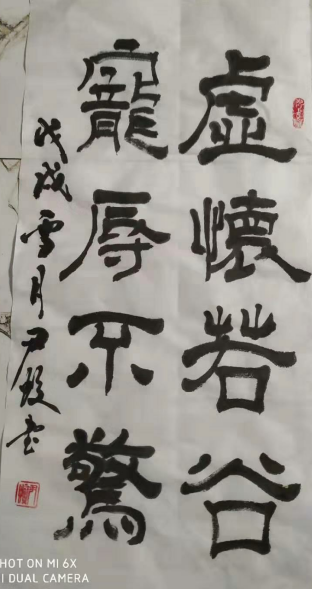 虛懷若谷
寵辱不驚
戊戌雪月尹
書
SHOT ON MI 6X
MI DUAL CAMERA